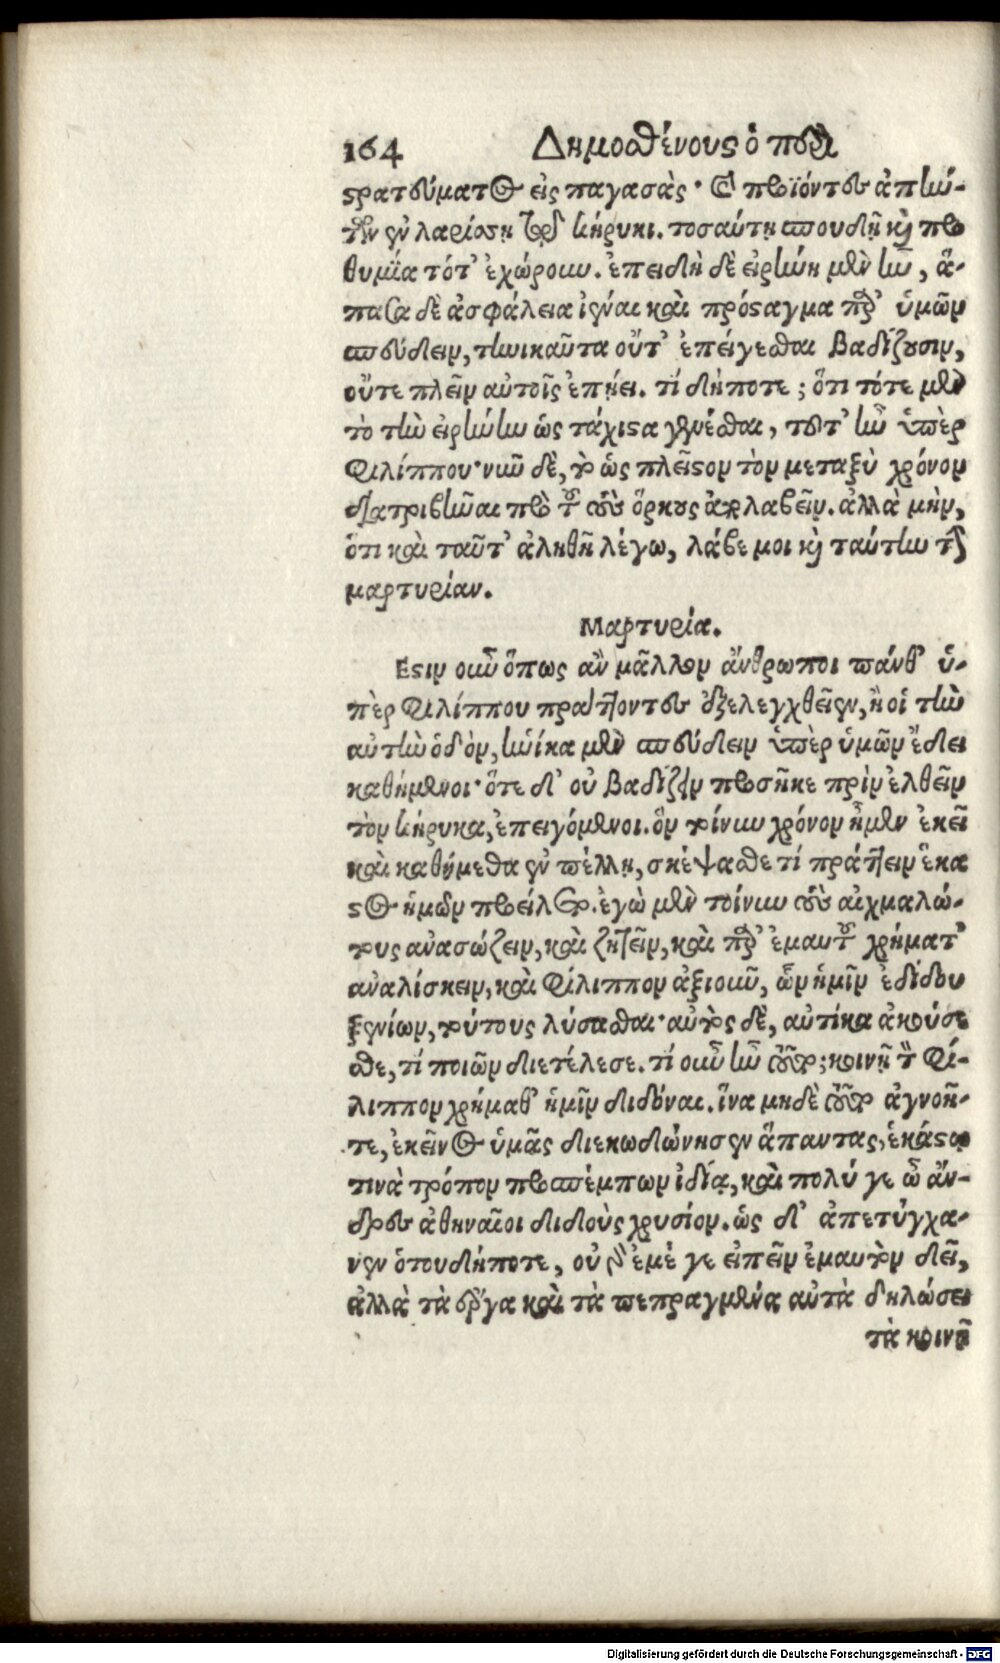 164 Δημοσθένους ὁ περὶ
στρατεύματος εἰς παγασὰς· καὶ προϊόντες ἀπήν-
των ἐν λαρίσσῃ τῷ κήρυκι. τοσαύτῃ σπουδῇ καὶ προ
θυμίᾳ τότ' ἐχώρουν. ἐπειδὴ δὲ εἰρήνη μὲν ἦν, ἅ-
πασα δὲ ἀσφάλεια ἰέναι καὶ πρόσταγμα παρ' ὑμῶν
σπεύδειν, τηνικαῦτα οὔτ' ἐπείγεσθαι βαδίζουσιν,
οὔτε πλεῖν αὐτοῖς ἐπῄει. τί δήποτε; ὅτι τότε μὲν
τὸ τὴν εἰρήνην ὡς τάχιστα γενέσθαι, τοῦτ' ἦν ὑπὲρ
Φιλίππου· νῦν δὲ, τὸ ὡς πλεῖστον τὸν μεταξὺ χρόνον
διατριβῆναι πρὸ τοῦ τοὺς ὅρκους ἀπολαβεῖν. ἀλλὰ μὴν,
ὅτι καὶ ταῦτ' ἀληθῆ λέγω, λάβε μοι καὶ ταύτην τὴν
μαρτυρίαν.
Μαρτυρία.
Εστιν οὖν ὅπως ἂν μᾶλλον ἄνθρωποι πάνθ' ὑ-
πὲρ Φιλίππου πράττοντες ἐξελεγχθεῖεν, ἢ οἱ τὴν
αὐτὴν ὁδὸν, ἡνίκα μὲν σπεύδειν ὑπὲρ ὑμῶν ἔδει
καθήμενοι· ὅτε δ' οὐ βαδίζειν προσῆκε πρὶν ἐλθεῖν
τὸν κήρυκα, ἐπειγόμενοι. ὃν τοίνυν χρόνον ἦμεν ἐκεῖ
καὶ καθήμεθα ἐν πέλλῃ, σκέψασθε τί πράττειν ἕκα
στος ἡμῶν προείλετο. ἐγὼ μὲν τοίνυν τοὺς αἰχμαλώ-
τους ἀνασώζειν, καὶ ζητεῖν, καὶ παρ' ἐμαυτοῦ χρήματ'
ἀναλίσκειν, καὶ Φίλιππον ἀξιοῦν, ὧν ἡμῖν ἐδίδου
ξενίων, τούτους λύσασθαι· αὐτὸς δὲ, αὐτίκα ἀκούσε
σθε, τί ποιῶν διετέλεσε. τί οὖν ἦν τοῦτο; κοινῇ τὸν Φί-
λιππον χρήμαθ' ἡμῖν διδόναι. ἵνα μηδὲ τοῦτο ἀγνοῆ-
τε, ἐκεῖνος ὑμᾶς διεκωδώνησεν ἅπαντας, ἑκάστῳ
τινὰ τρόπον προσπέμπων ἰδίᾳ, καὶ πολύ γε ὦ ἄν-
δρες ἀθηναῖοι διδοὺς χρυσίον. ὡς δ' ἀπετύγχα-
νεν ὁτουδήποτε, οὐ γὰρ ἐμέ γε εἰπεῖν ἐμαυτὸν δεῖ,
ἀλλὰ τὰ ἔργα καὶ τὰ πεπραγμένα αὐτὰ δηλώσει
τὰ κοινῇ
Digitalisierung gefördert durch die Deutsche Forschungsgemeinschaft - DFG